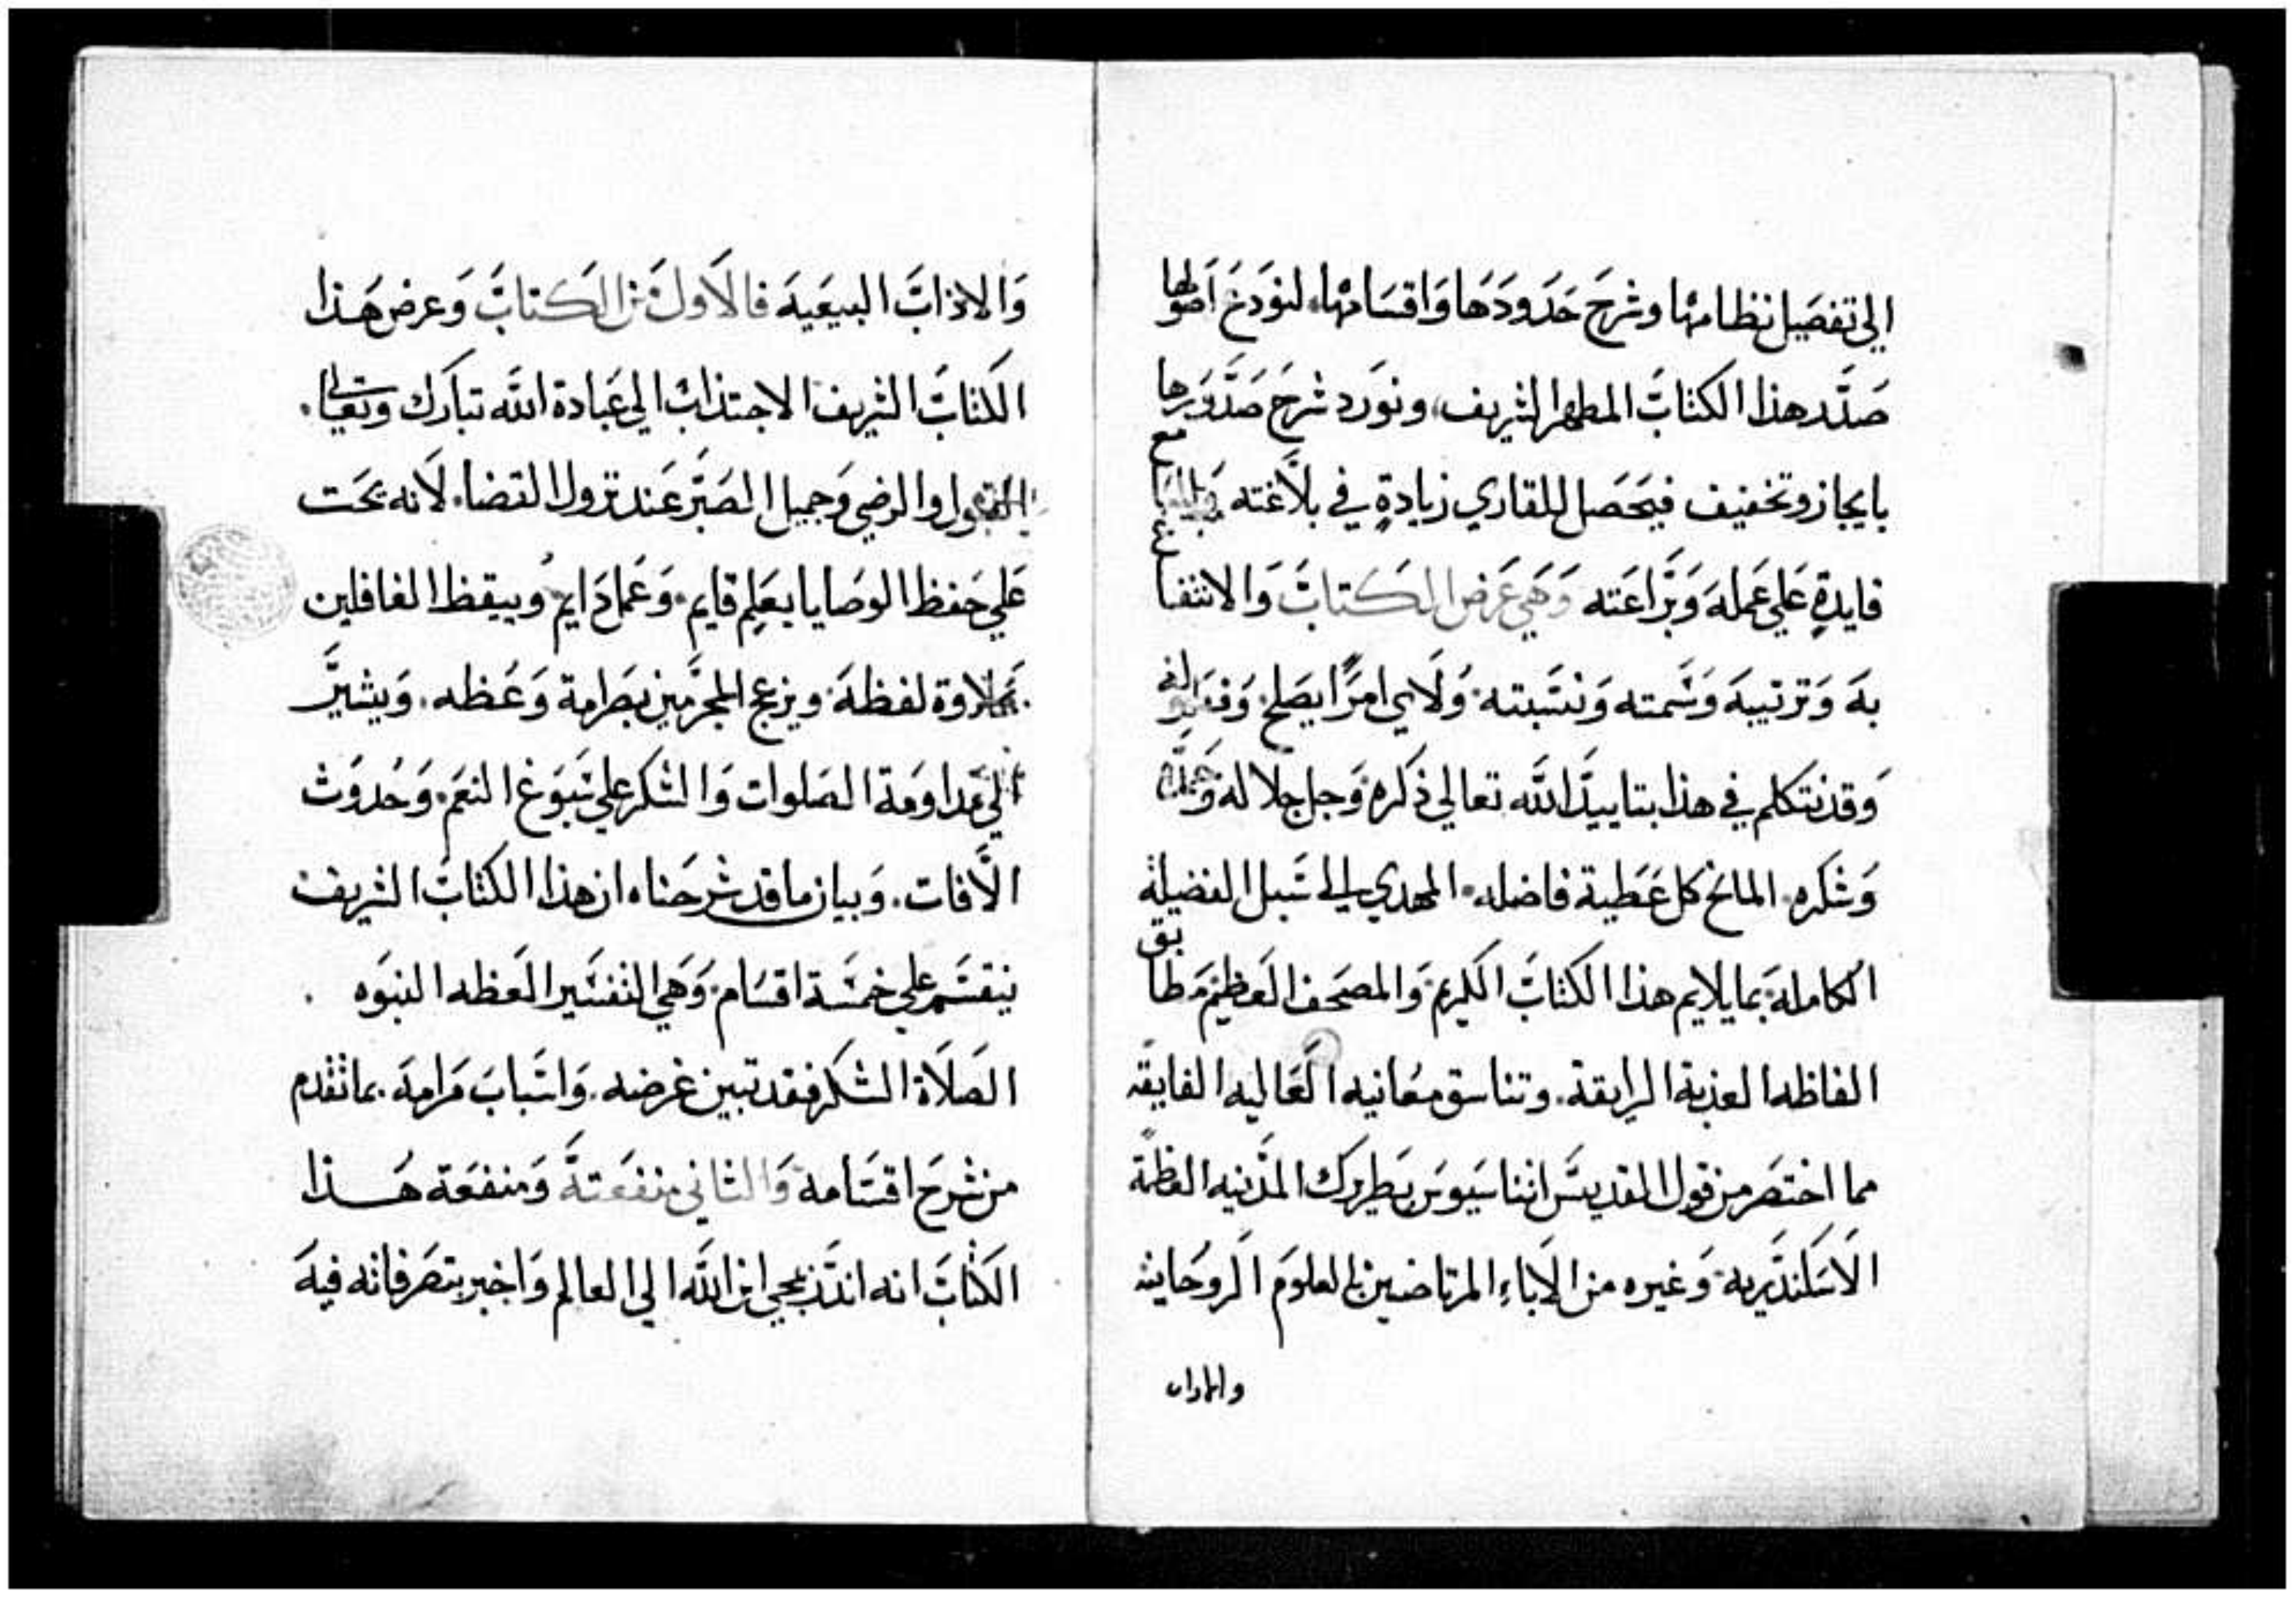 الي تفصيل نظامها وشرح حدودها واقسامها، لنودع اصولها
صدر هذا الكتاب المطهر الشريف، ونورد شرح صدورها
بايجاز وتخفيف فيحصل للقاري زيادة في بلاغته
فايدة علي عمله وبراعته وهي غرض الكتاب والانتفاع
به وترتيبه وسمته ونسبته، ولاي امر يصلح،
وقد نتكلم في هذا بتاييد الله تعالي ذكره وجل جلاله
وشكره، المانح كل عطية فاضله، المهدي الي سبل الفضيلة
الكاملة، بما يلايم هذا الكتاب الكريم، والمصحف العظيم، مطابق
الفاظه العذبة الرايقة، وتناسق معانيه العاليه الفايقه
مما اختصر من قول القديس اتناسيوس بطريرك المدنيه العظمة
الاسكندريه، وغيره من الاباء المرتاضين بالعلوم الروحانيه
والاداب
والاداب البيعيه فالاول من الكتاب وعرض هذا
الكتاب الشريف الاجتذاب الي عبادة الله تبارك وتعالي.
بالقبول والرضي وجميل الصبر عند نزول القضا، لانه يحت
علي حفظ الوصايا بعلم قايم، وعمل دايم، وييقظ الغافلين
بتلاوة لفظه، ويزعج المجرمين بصرامة وعظه، ويشير
الي مداومة الصلوات والشكر علي سبوغ النعم، وحدوث
الافات، وبيان ما قد شرحناه ان هذا الكتاب الشريف
ينقسم علي خمسة اقسام، وهي التفسير العظه النبوه
الصلاة الشكر فقد تبين غرضه، واسباب مرامه، بما تقدم
من شرح اقسامه والثاني منفعته ومنفعة هذا
الكتاب انه انذر بمجي ابن الله الي العالم واخبر بتصرفاته فيه